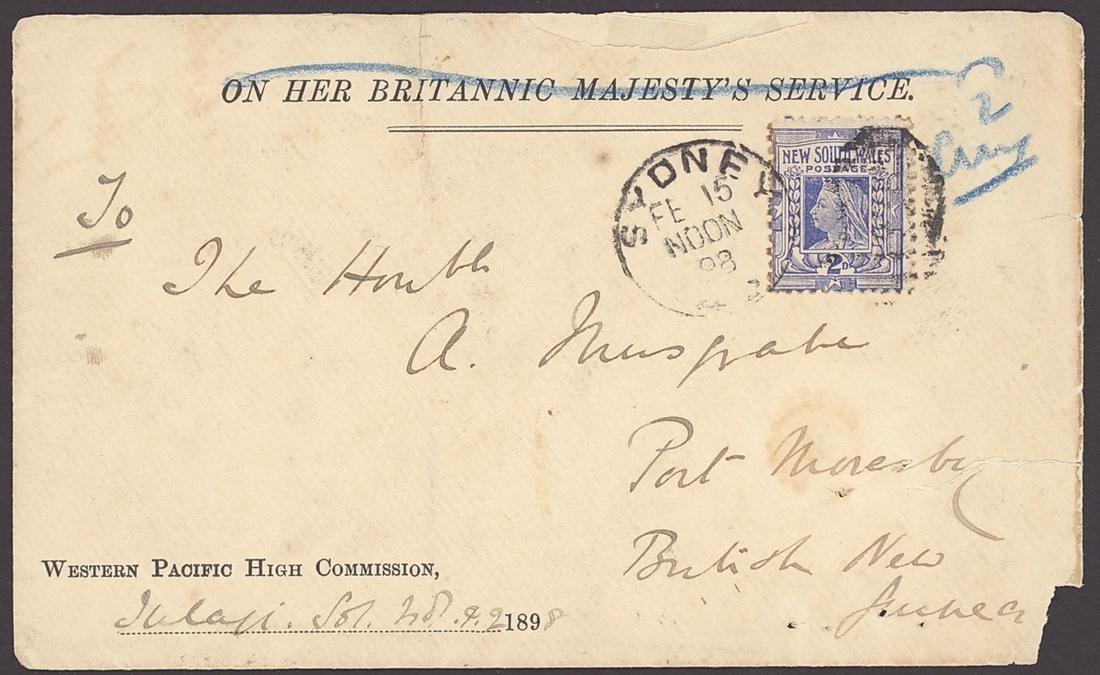 ON HER BRITANNIC MAJESTY'S SERVICE.
2
SYDNEY
FE 15
NOON
98
NEW SOUTH WALES
POSTAGE
2D
To
The Honble
A. Musgrave
Port Moresby
British New
Guinea
WESTERN PACIFIC HIGH COMMISSION,
Tulagi. Sol. 1898